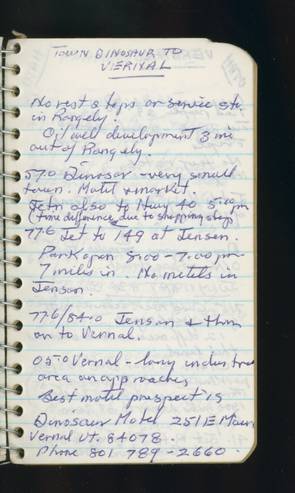 TOWN DINOSAUR TO
VERNAL
No rest stops or service sta.
in Rangely.
Oil well development 3 mi
out of Rangely.
57.0 Dinosaur - very small
town. Motel & market.
Jctn also to Hwy 40 5:00 pm
(time difference due to shopping stop)
77.6 Jct to 149 at Jensen.
Park open 8:00 - 7:00 pm
7 miles in. No motels in
Jenson.
77.6/84.0 Jensen & thru
on to Vernal.
05.0 Vernal - long industrial
area on approaches
Best motel prospect is
Dinosaur Motel 251 E Main
Vernal Ut. 84078.
Phone 801 789-2660.